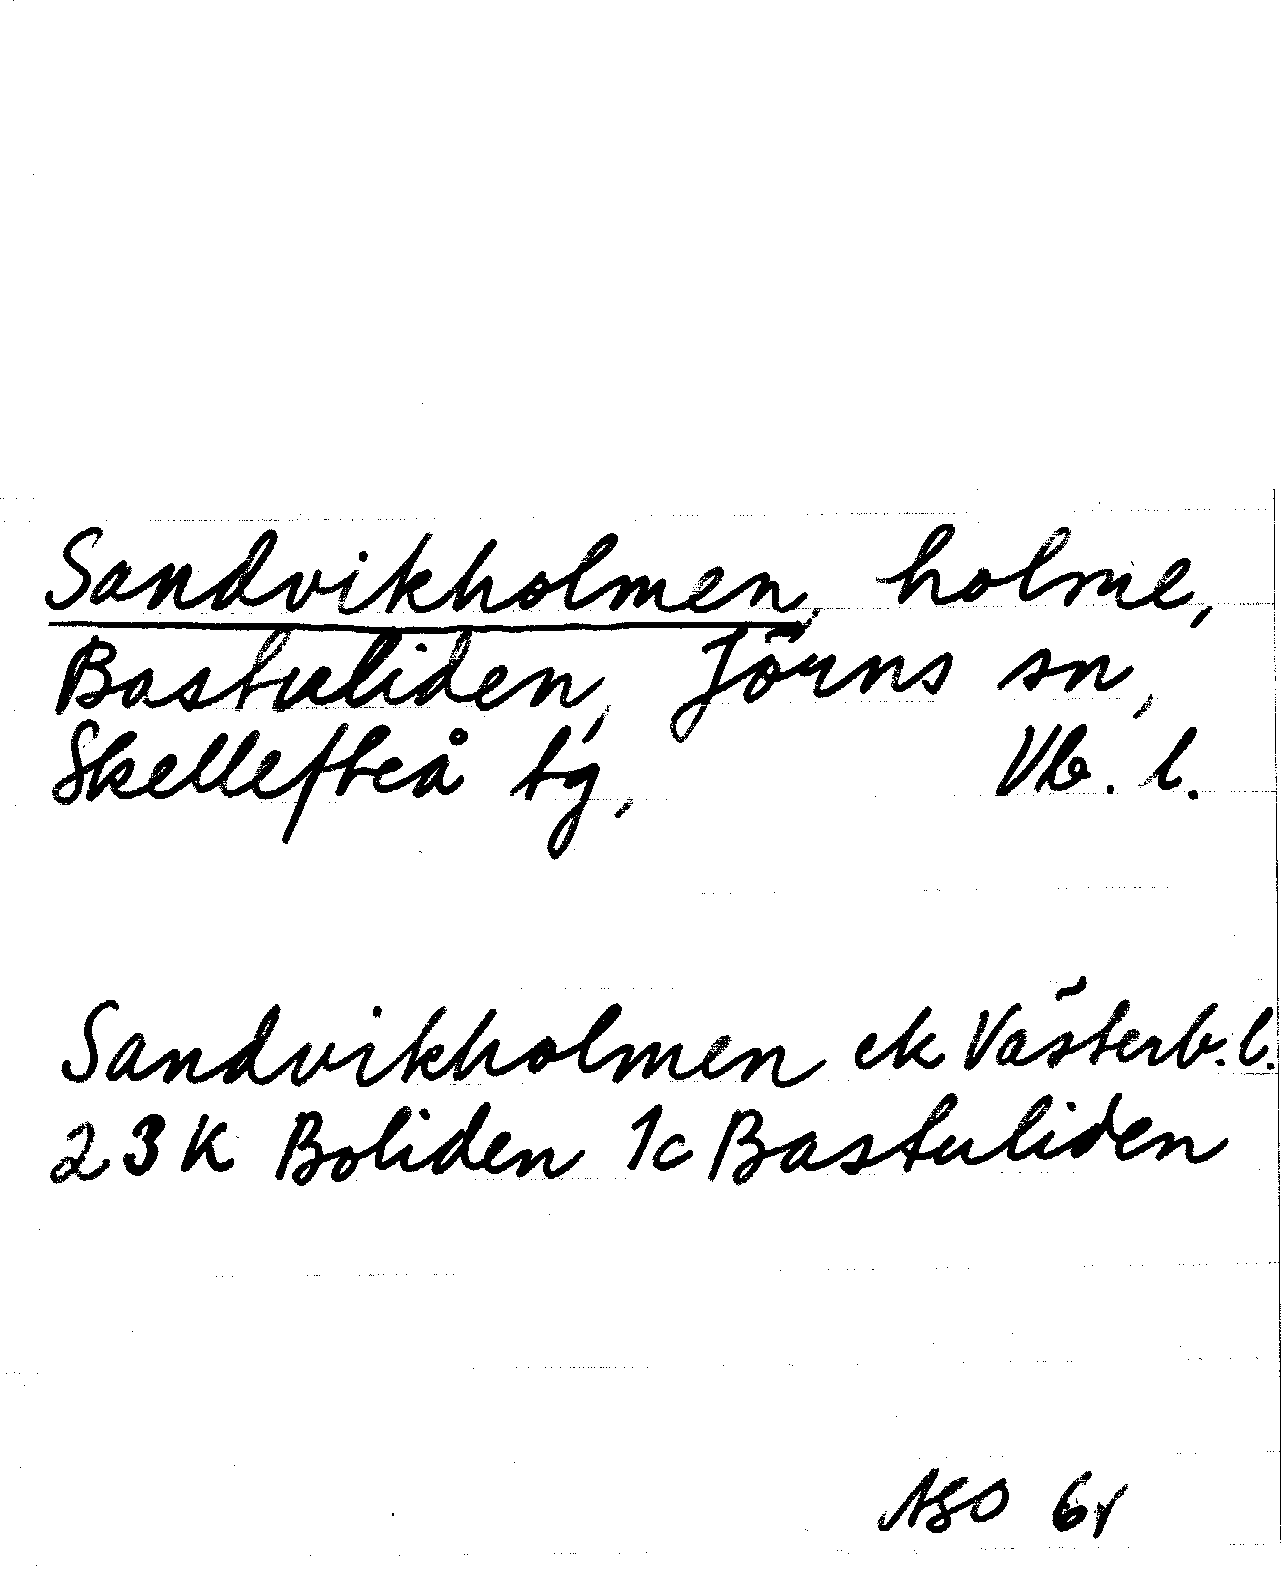 Sandvikholmen, holme,
Bastuliden, Jörns sn,
Skellefteå tg, Vb. l.
Sandvikholmen ek Västerb. l.
23K Boliden 1c Bastuliden